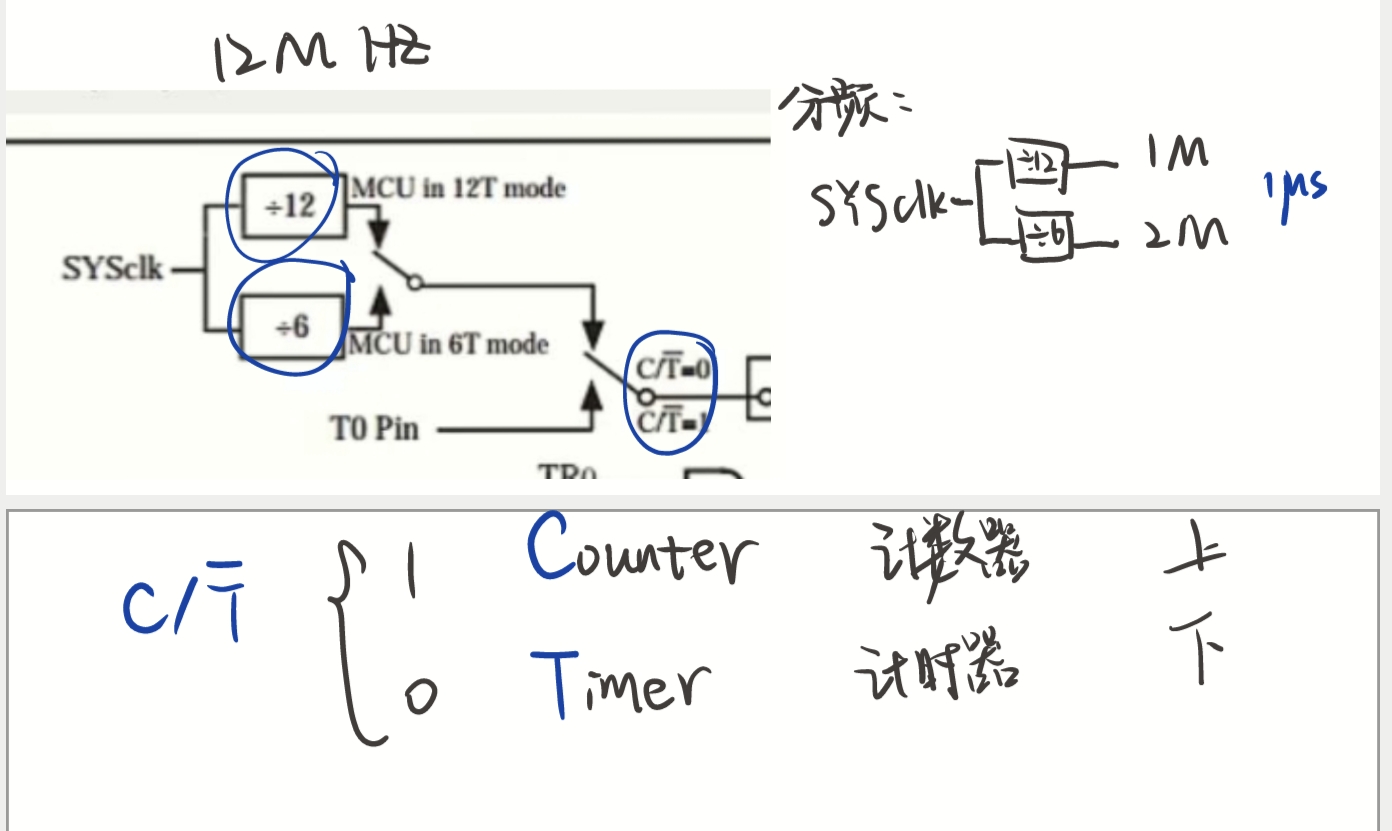 12M HZ
÷12
MCU in 12T mode
SYSclk
÷6
MCU in 6T mode
C/T̅=0
T0 Pin
C/T̅=1
TR0
分频：
SYSclk
÷12
1M
÷6
2M
1μs
C/T̅
1 Counter 计数器 上
0 Timer 计时器 下